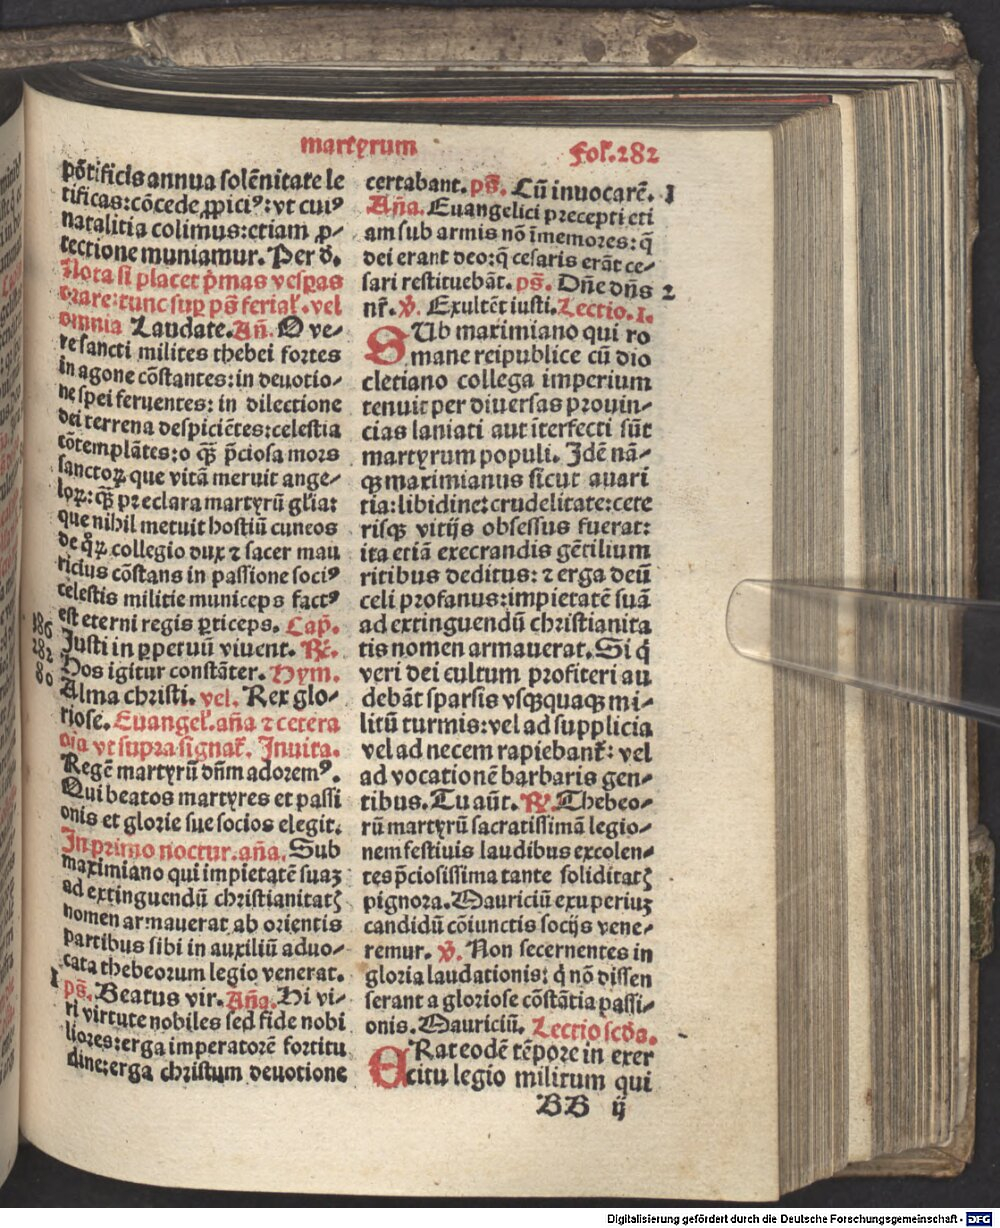 martyrum
Fol'.282
põtificis annua solẽnitate le
tificas: cõcede ꝓpici⁹: vt cui⁹
natalitia colimus: etiam ꝓ⸗
tectione muniamur. Per d.
Nota si placet p̃mas vesꝑas
orare: tunc suꝑ ps̃ ferial'. vel
omnia Laudate. Añ. O ve⸗
re sancti milites thebei fortes
in agone cõstantes: in deuotio⸗
ne spei feruentes: in dilectione
dei terrena despiciẽtes: celestia
cõtemplãtes: o qꝫ̃ p̃ciosa mors
sanctoꝝ que vitã meruit ange⸗
loꝝ: qꝫ̃ preclara martyrũ gl'ia:
que nihil metuit hostiũ cuneos
de q̊ꝝ collegio dux ⁊ sacer mau
ricius cõstans in passione soci⁹
celestis militie municeps fact⁹
est eterni regis ꝑticeps. Cap̃.
186
Justi in ꝑpetuũ viuent. Rẽ.
282
Hos igitur constãter. Hym.
80
Alma christi. vel. Rex glo⸗
riose. Euangel'. aña ⁊ cetera
oĩa vt supra signat̃. Inuita.
Regẽ martyrũ dñm adorem⁹.
Qui beatos martyres et passi
onis et glorie sue socios elegit.
In primo noctur. aña. Sub
maximiano qui impietatẽ suaꝫ
ad extinguendũ christianitatꝭ
nomen armauerat ab orientis
partibus sibi in auxiliũ aduo⸗
cata thebeorum legio venerat.
1
ps̃. Beatus vir. Aña. Hi vi⸗
ri virtute nobiles sed fide nobi
liores: erga imperatorẽ fortitu
dine: erga christum deuotione
certabant. ps̃. Cũ inuocarẽ. 1
Aña. Euangelici precepti eti
am sub armis nõ ĩmemores: q̃
dei erant deo: q̃ cesaris erãt ce⸗
sari restituebãt. ps̃. Dñe dñs 2
nr̃. V̕. Exultẽt iusti. Lectio. 1.
SUb maximiano qui ro
mane reipublice cũ dio
cletiano collega imperium
tenuit per diuersas prouin⸗
cias laniati aut ĩterfecti sũt
martyrum populi. Idẽ nã⸗
qꝫ maximianus sicut auari
tia: libidine: crudelitate: cete
risqꝫ vitijs obsessus fuerat:
ita etiã execrandis gẽtilium
ritibus deditus: ⁊ erga deũ
celi profanus: impietatẽ suã
ad extinguendũ christianita
tis nomen armauerat. Si q̃
veri dei cultum profiteri au
debãt sparsis vsqꝫquaqꝫ mi⸗
litũ turmis: vel ad supplicia
vel ad necem rapiebant̃: vel
ad vocationẽ barbaris gen⸗
tibus. Tu aũt. R̕. Thebeo⸗
rũ martyrũ sacratissimã legio⸗
nem festiuis laudibus excolen⸗
tes p̃ciosissima tante soliditatꝭ
pignora. Mauriciũ exuperiuꝫ
candidũ cõiunctis socijs vene⸗
remur. V̕. Non secernentes in
gloria laudationis: q̃ nõ dissen
serant a gloriose cõstãtia passi⸗
onis. Mauriciũ. Lectio scďa.
ERat eodẽ tẽpore in exer
citu legio militum qui
BB ij
Digitalisierung gefördert durch die Deutsche Forschungsgemeinschaft - DFG